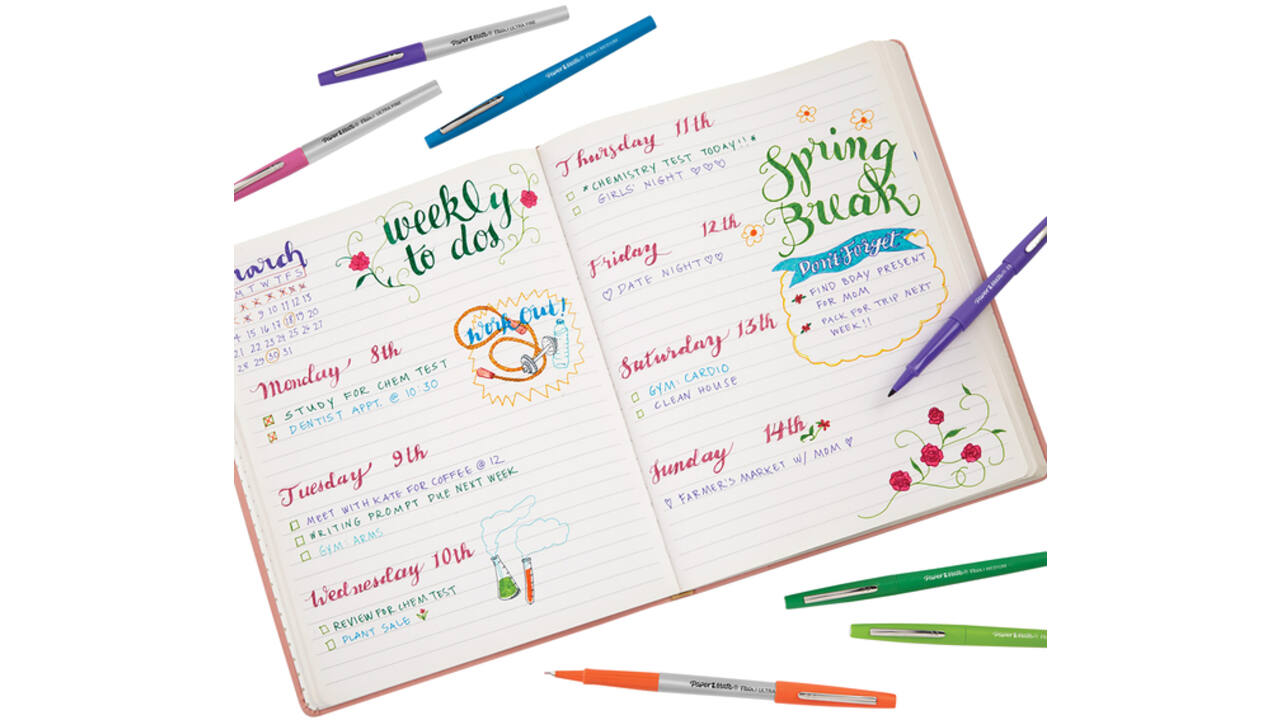 Paper Mate® Flair / ULTRA FINE
Paper Mate® Flair / MEDIUM
Paper Mate® Flair / ULTRA FINE
march
M T W T F S
9 10 11 12 13
4 15 16 17 18 19 20
21 22 23 24 25 26 27
28 29 30 31
weekly
to dos
work out!
Monday 8th
STUDY FOR CHEM TEST
DENTIST APPT. @ 10:30
Tuesday 9th
MEET WITH KATE FOR COFFEE @ 12
WRITING PROMPT DUE NEXT WEEK
GYM: ARMS
Wednesday 10th
REVIEW FOR CHEM TEST
PLANT SALE
Thursday 11th
*CHEMISTRY TEST TODAY!!*
GIRLS' NIGHT ♡♡♡
Friday 12th
♡ DATE NIGHT ♡♡
Saturday 13th
GYM: CARDIO
CLEAN HOUSE
Sunday 14th
♡ FARMER'S MARKET W/ MOM ♡
Spring
Break
Don't Forget
FIND BDAY PRESENT
FOR MOM
PACK FOR TRIP NEXT
WEEK!!
Paper Mate®
Paper Mate® Flair / MEDIUM
Paper Mate® Flair
Paper Mate® Flair / ULTRA